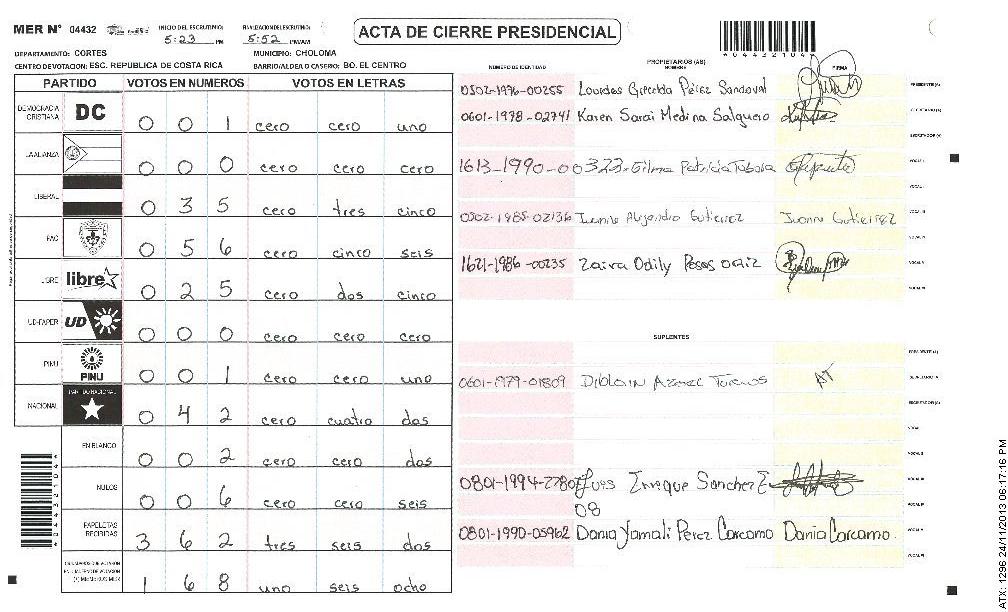 MER Nº 04432 INICIO DEL ESCRUTINIO 5:23 PM FINALIZACION DEL ESCRUTINIO: 5:52 PM/AM
ACTA DE CIERRE PRESIDENCIAL
DEPARTAMENTO: CORTES MUNICIPIO: CHOLOMA
CENTRO DE VOTACION: ESC. REPUBLICA DE COSTA RICA BARRIO/ALDEA O CASERIO: BO. EL CENTRO
PARTIDO VOTOS EN NUMEROS VOTOS EN LETRAS
DEMOCRACIA CRISTIANA DC 0 0 1 cero cero uno
LA ALIANZA 0 0 0 cero cero cero
LIBERAL 0 3 5 cero tres cinco
PAC 0 5 6 cero cinco seis
LIBRE libre 0 2 5 cero dos cinco
UD-FAPER UD 0 0 0 cero cero cero
PINU PINU 0 0 1 cero cero uno
NACIONAL PARTIDO NACIONAL 0 4 2 cero cuatro dos
EN BLANCO 0 0 2 cero cero dos
NULOS 0 0 6 cero cero seis
PAPELETAS RECIBIDAS 3 6 2 tres seis dos
1 6 8 uno seis ocho
NUMERO DE IDENTIDAD PROPIETARIOS (AS) NOMBRE FIRMA
0502-1996-00255 Lourdes Griselda Pérez Sandoval PRESIDENTE (A)
0601-1978-02741 Karen Sarai Medina Salguero SECRETARIO (A)
ESCRUTADOR (A)
1613-1990-00323 Gilma Patricia Tabora VOCAL I
VOCAL II
0502-1985-02136 Juanis Alejandro Gutierrez Juanis Gutierrez VOCAL III
VOCAL IV
1621-1986-00235 Zaira Odily VOCAL V
VOCAL VI
SUPLENTES
PRESIDENTE (A)
0601-1979-01809 SECRETARIO (A)
ESCRUTADOR (A)
VOCAL I
VOCAL II
0801-1994-22808 Enrique Sanchez VOCAL III
08 VOCAL IV
0801-1990-05962 Dania Yamali Pérez Carcamo Dania Carcamo. VOCAL V
VOCAL VI
ATX: 1296 24/11/2013 06:17:16 PM